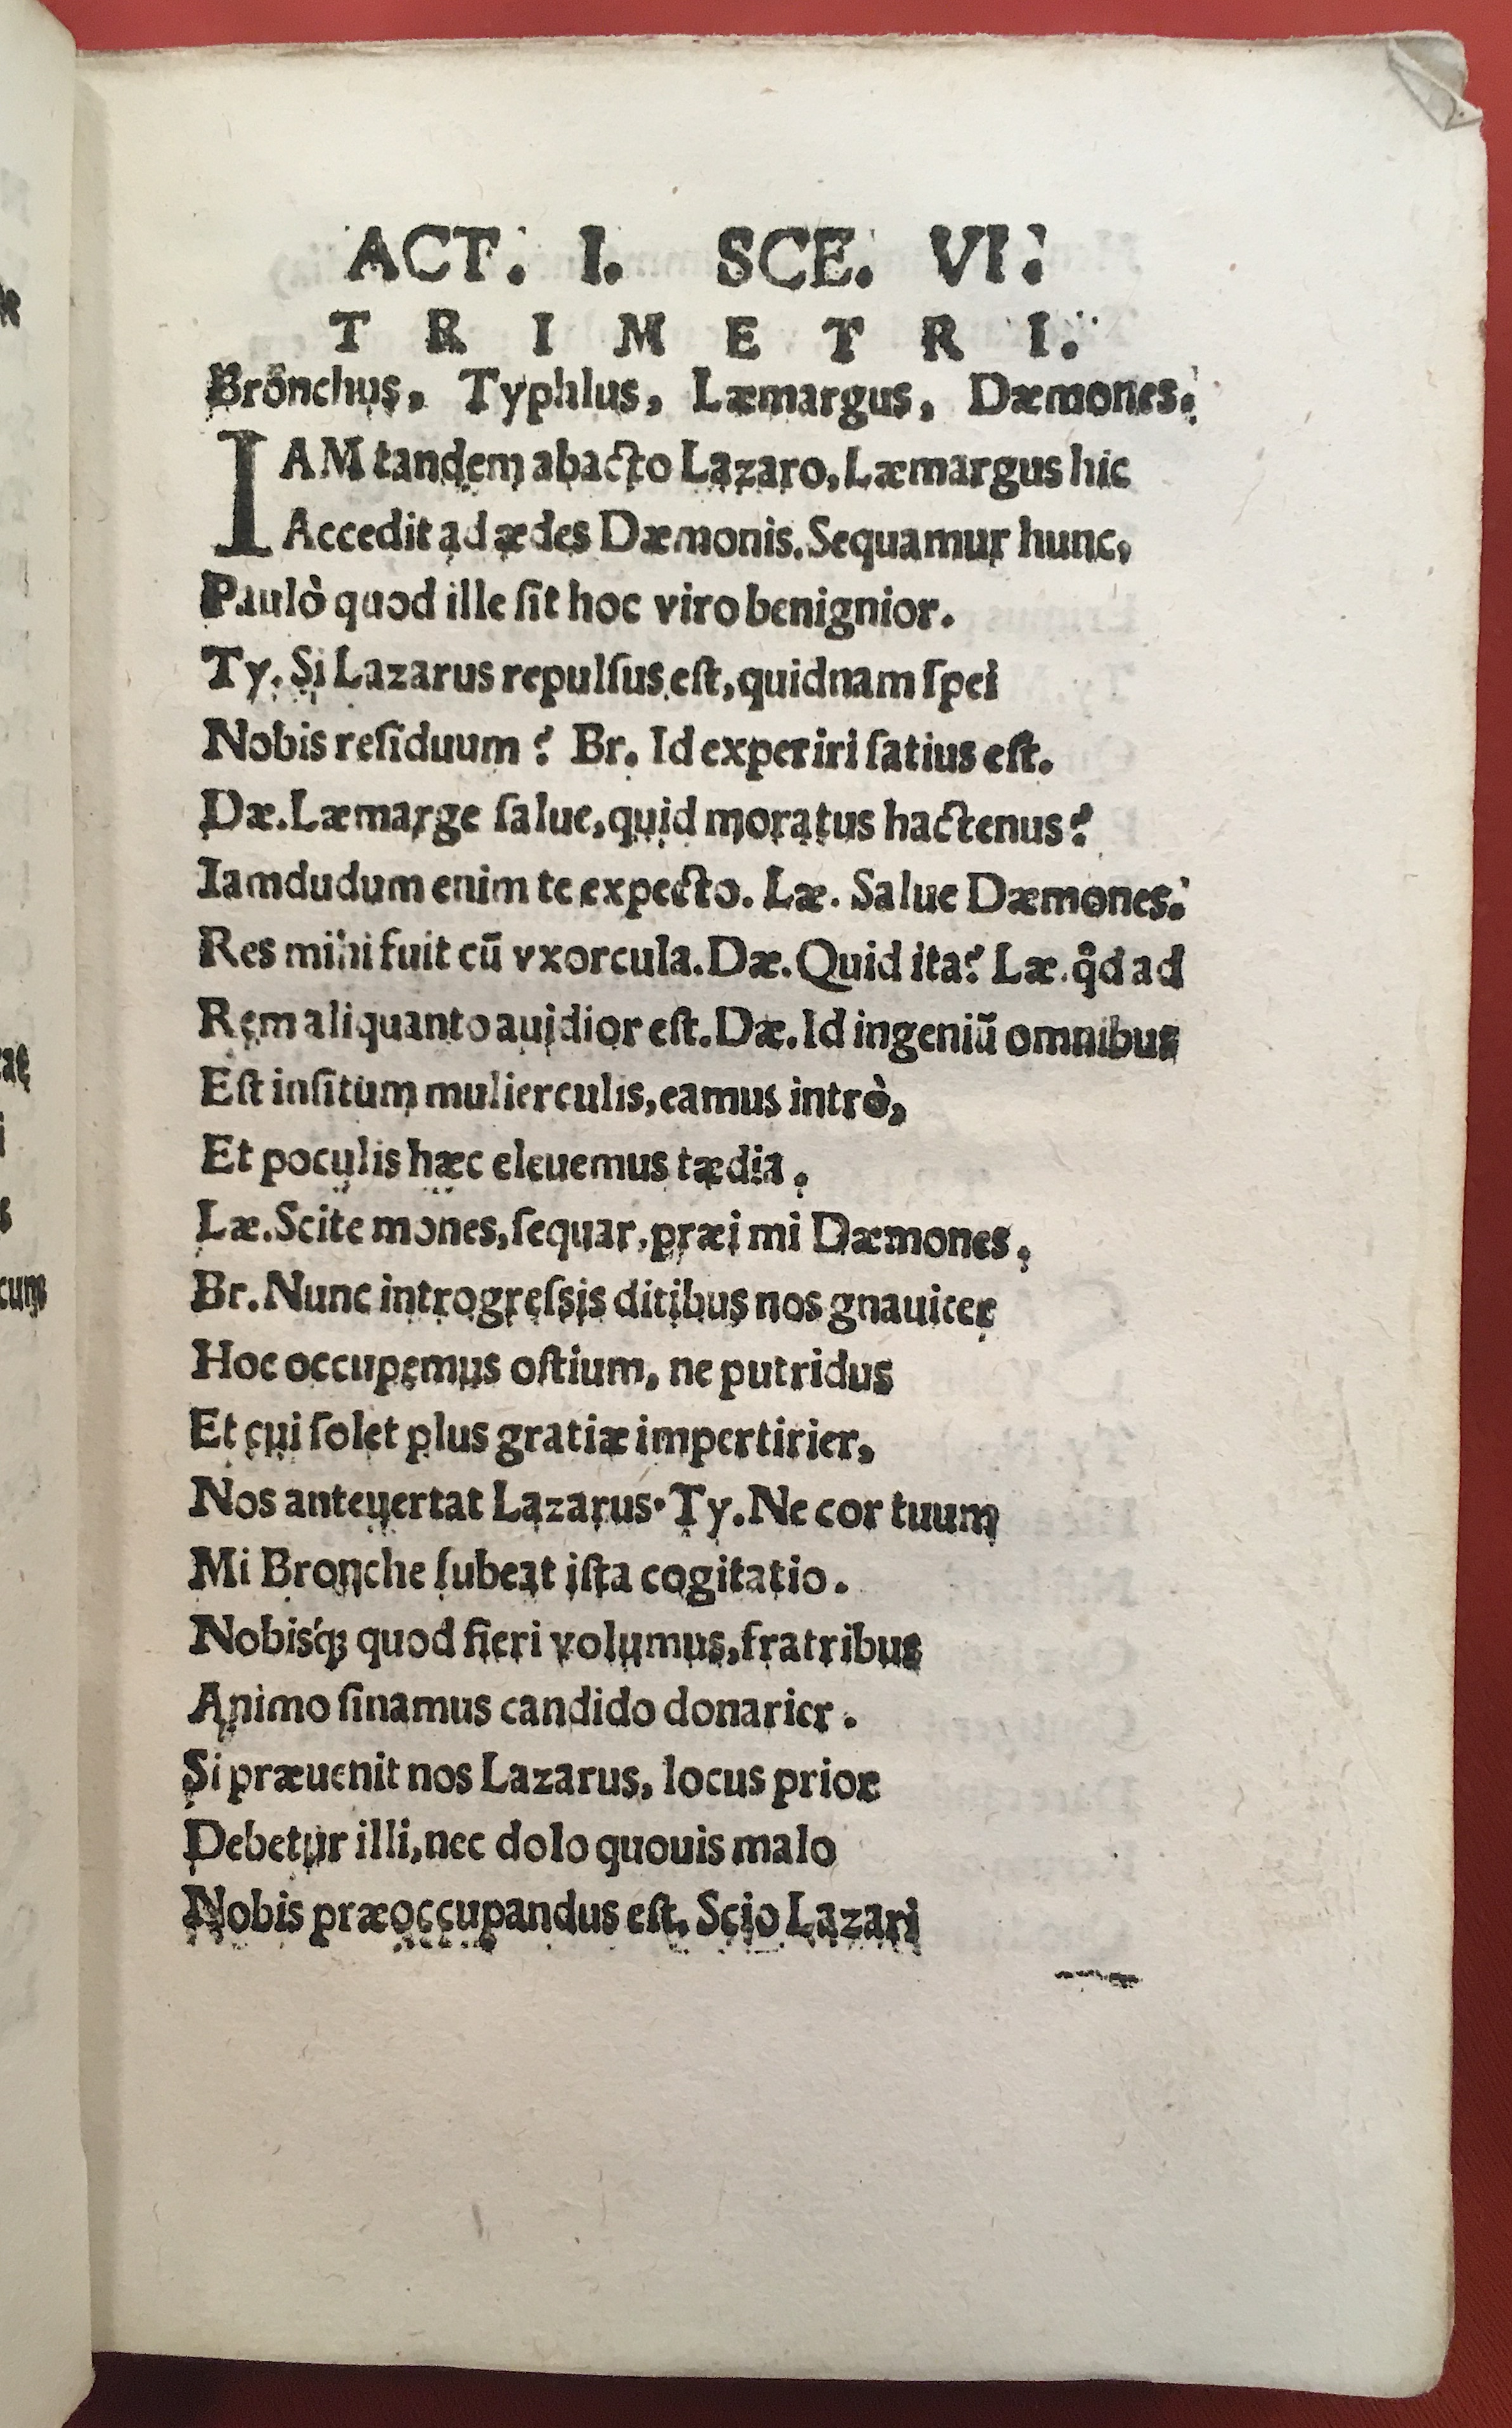 ACT. I. SCE. VI.
TRIMETRI.
Bronchus, Typhlus, Læmargus, Dæmones.
IAM tandem abacto Lazaro, Læmargus hic
Accedit ad ædes Dæmonis. Sequamur hunc,
Paulò quod ille ſit hoc viro benignior.
Ty. Si Lazarus repulſus eſt, quidnam ſpei
Nobis reſiduum? Br. Id experiri ſatius eſt.
Dæ. Læmarge ſalue, quid moratus hactenus?
Iamdudum enim te expecto. Læ. Salue Dæmones.
Res mihi fuit cū vxorcula. Dæ. Quid ita? Læ. qͦd ad
Rem aliquanto auidior eſt. Dæ. Id ingeniū omnibus
Eſt inſitum mulierculis, eamus intrò,
Et poculis hæc eleuemus tædia.
Læ. Scite mones, ſequar, præi mi Dæmones.
Br. Nunc introgreſsis ditibus nos gnauiter
Hoc occupemus oſtium, ne putridus
Et cui ſolet plus gratiæ impertirier,
Nos anteuertat Lazarus. Ty. Ne cor tuum
Mi Bronche ſubeat iſta cogitatio.
Nobisq́ꝫ quod fieri volumus, fratribus
Animo ſinamus candido donarier.
Si præuenit nos Lazarus, locus prior
Debetur illi, nec dolo quouis malo
Nobis præoccupandus eſt. Scio Lazari